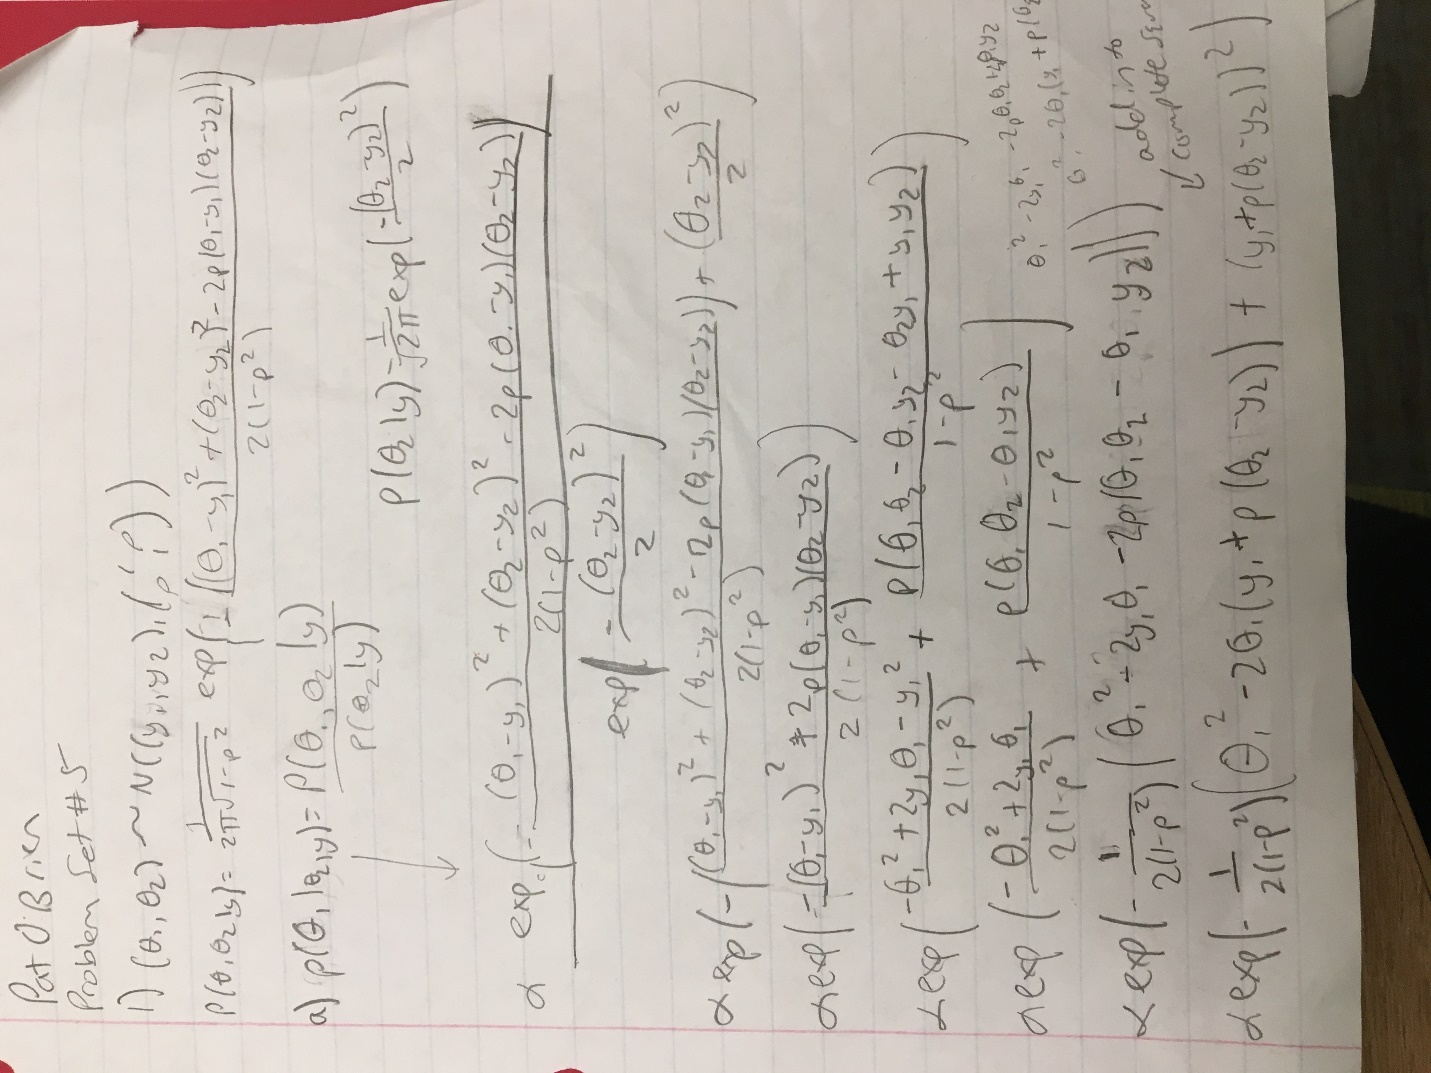 Pat O'Brien
Problem Set #5
1) (θ₁,θ₂) ~ N((y₁,y₂),(¹ρ ρ¹))
p(θ₁θ₂|y) = 1/(2π√(1-ρ²)) exp(-((θ₁-y₁)²+(θ₂-y₂)²-2ρ(θ₁-y₁)(θ₂-y₂))/(2(1-ρ²)))
a) p(θ₁|θ₂,y) = p(θ₁,θ₂|y)/p(θ₂|y)
p(θ₂|y) = 1/√2π exp(-(θ₂-y₂)²/2)
∝ exp(-((θ₁-y₁)²+(θ₂-y₂)²-2ρ(θ₁-y₁)(θ₂-y₂))/(2(1-ρ²)))
exp(-(θ₂-y₂)²/2)
∝ exp(-((θ₁-y₁)²+(θ₂-y₂)²-2ρ(θ₁-y₁)(θ₂-y₂))/(2(1-ρ²)) + (θ₂-y₂)²/2)
∝ exp(-(θ₁-y₁)²+2ρ(θ₁-y₁)(θ₂-y₂)/(2(1-ρ²)))
∝ exp((-θ₁²+2y₁θ₁-y₁²)/(2(1-ρ²)) + ρ(θ₁θ₂-θ₁y₂-θ₂y₁+y₁y₂)/(1-ρ²))
∝ exp((-θ₁²+2y₁θ₁)/(2(1-ρ²)) + ρ(θ₁θ₂-θ₁y₂)/(1-ρ²))
θ₁²-2y₁θ₁-2ρθ₁θ₂+2ρθ₁y₂
θ₁²-2θ₁(y₁+ρ(θ₂
∝ exp(-1/(2(1-ρ²))(θ₁²-2y₁θ₁-2ρ(θ₁θ₂-θ₁y₂)))
add in to
complete
∝ exp(-1/(2(1-ρ²))(θ₁²-2θ₁(y₁+ρ(θ₂-y₂))+(y₁+ρ(θ₂-y₂))²)